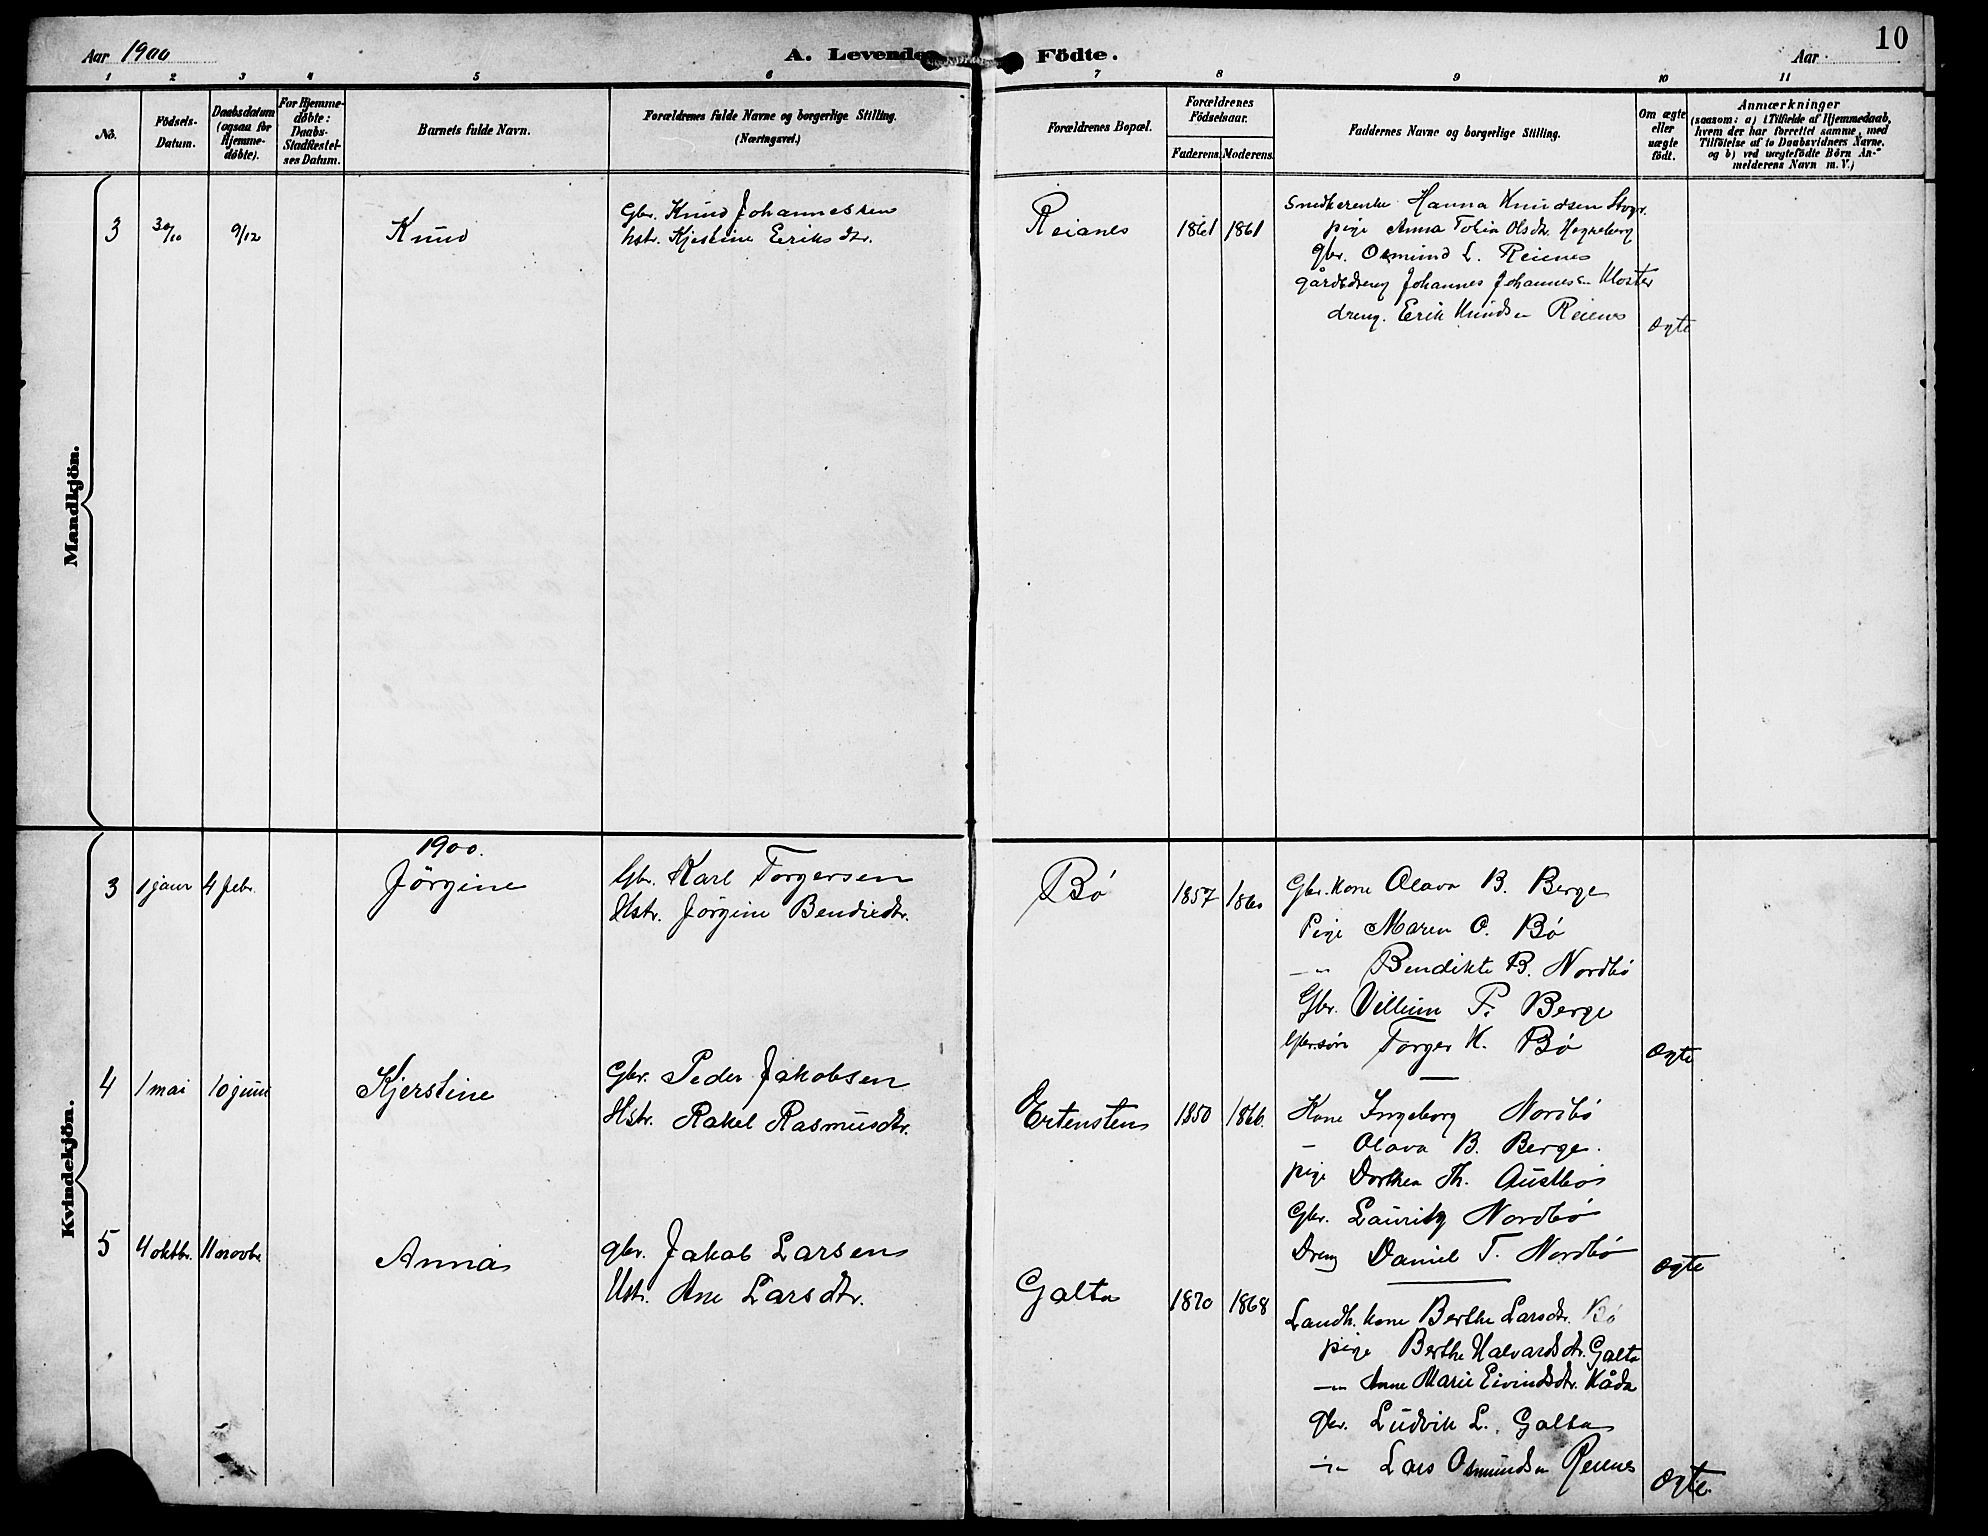 Aar 1900
A. Levende Födte.
Aar
10
1 2 3 4 5 6 7 8 9 10 11
No.
Födsels-Datum.
Daabsdatum (ogsaa for Hjemme-døbte).
For Hjemme-døbte: Daabs-Stadfæstel-ses Datum.
Barnets fulde Navn.
Forældrenes fulde Navne og borgerlige Stilling.
(Næringsvei.)
Forældrenes Bopæl.
Forældrenes Födselsaar.
Faderens. Moderens.
Faddernes Navne og borgerlige Stilling.
Om ægte eller uægte født.
Anmærkninger
(saasom: a) i Tilfælde af Hjemmedaab,
hvem der har forrettet samme, med
Tilföielse af to Daabsvidners Navne,
og b) ved uægtefödte Börn An-
melderens Navn m. V.)
Mandkjön.
3 30/10 9/12 Knud
Gbr. Knud Johannessen
hstr. Kjestine Eeriksdtr.
Reianes 1861 1861
Hanna Knudsen
pige Anna Olsdtr.
gbr. Osmund L. Reienes
gårdsdreng Johannes Johannesen Kloster
dreng. Erik Knudsen Reienes
ægte
Kvindekjön.
1900.
3 1 janur 4 febr. Jörgine
Gbr. Karl Torgersen
Hstr. Jörgine Bendicdtr.
Bö 1857 1860
Gbr. kone Olava B. Berge
Pige Maren O. Bö
—"— Bendikte B. Nordbö
Gbr. Villum P. Berge
Gbr.søn Torger K. Bö
ægte
4 1 mai 10 juni Kjerstine
Gbr. Peder Jakobsen
Hstr. Rakel Rasmusdtr.
Ertensten 1850 1866.
Kone Ingeborg Nordbö
— Olava B. Berge.
pige Dorthea Th. Austbö
Gbr. Lauritz Nordbö
Dreng Daniel T. Nordbö
ægte
5 4 oktbr. 11 novbr. Anna
gbr. Jakob Larsen
Hstr. Ane Larsdtr.
Galta 1870 1868
Landh. kone Berthe Larsdtr. Bö
pige Berthe Halvardsdtr. Galta
—"— Anne Marie Eivindsdtr. Kåda
gbr. Ludvik L. Galta
—"— Lars Osmundsen Reienes
ægte.